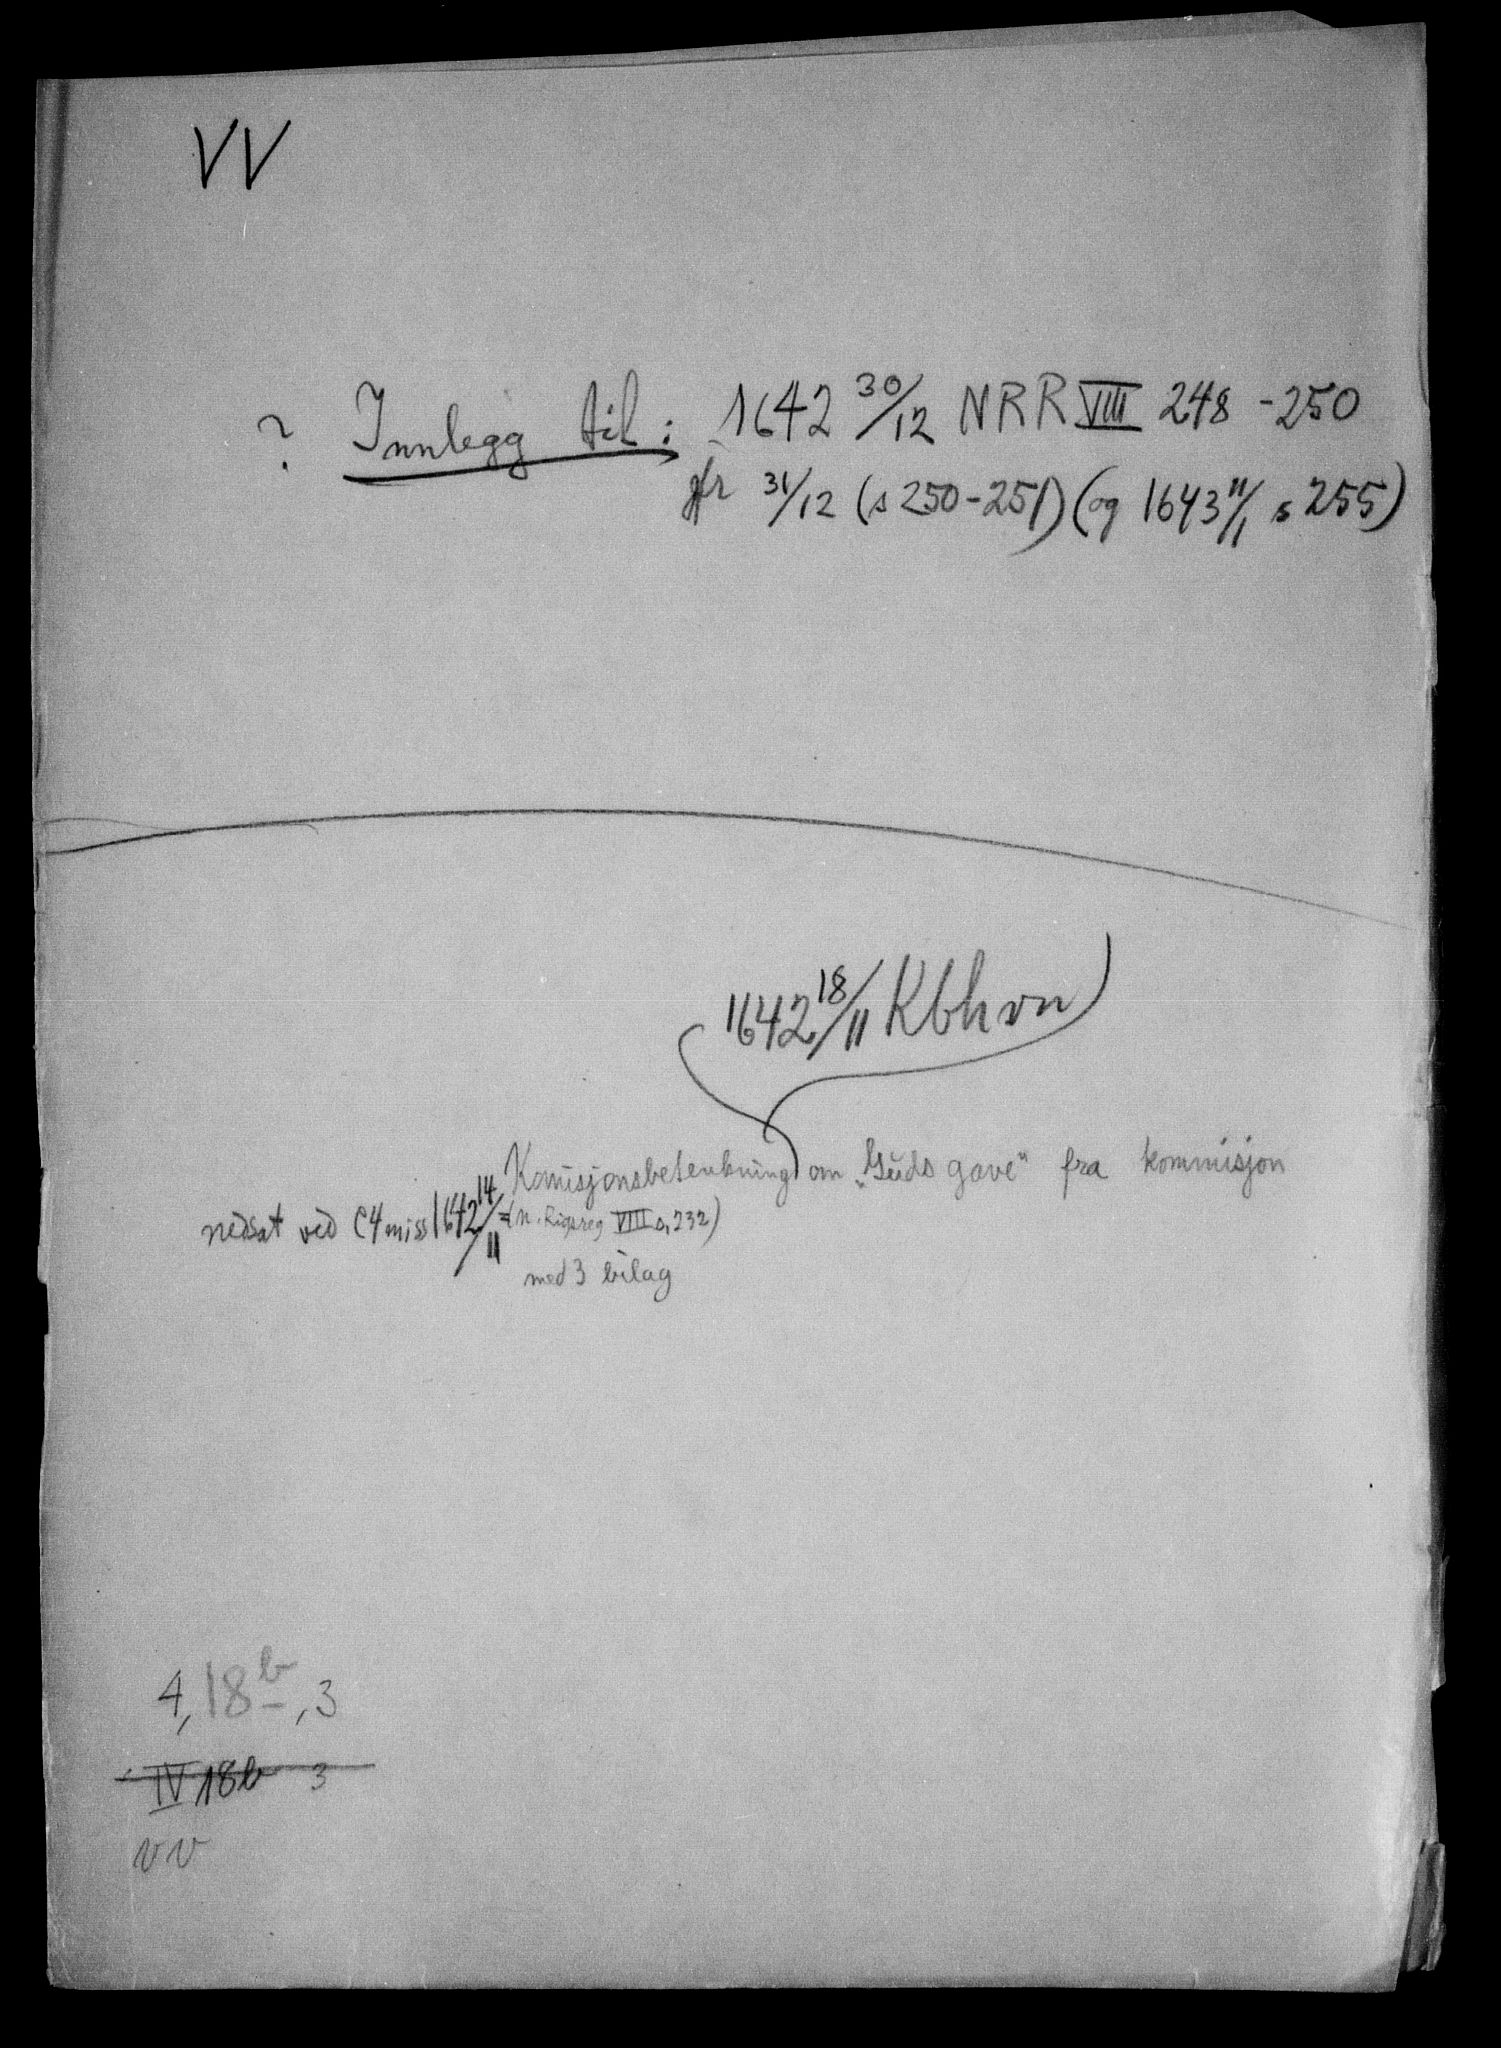 VV
? Innlegg til: 1642 30/12 NRR VIII 248-250
jfr 31/12 (s 250-251) (og 1643 11/1 s 255)
1642 18/11 Kbhvn
Komisjonsbetenkning om „Guds gave" fra kommisjon
nedsat ved C4 miss 1642 14/11 = (N. Rigsreg VIII s. 232)
med 3 bilag
4, 18 b, 3
IV 18b 3
vv